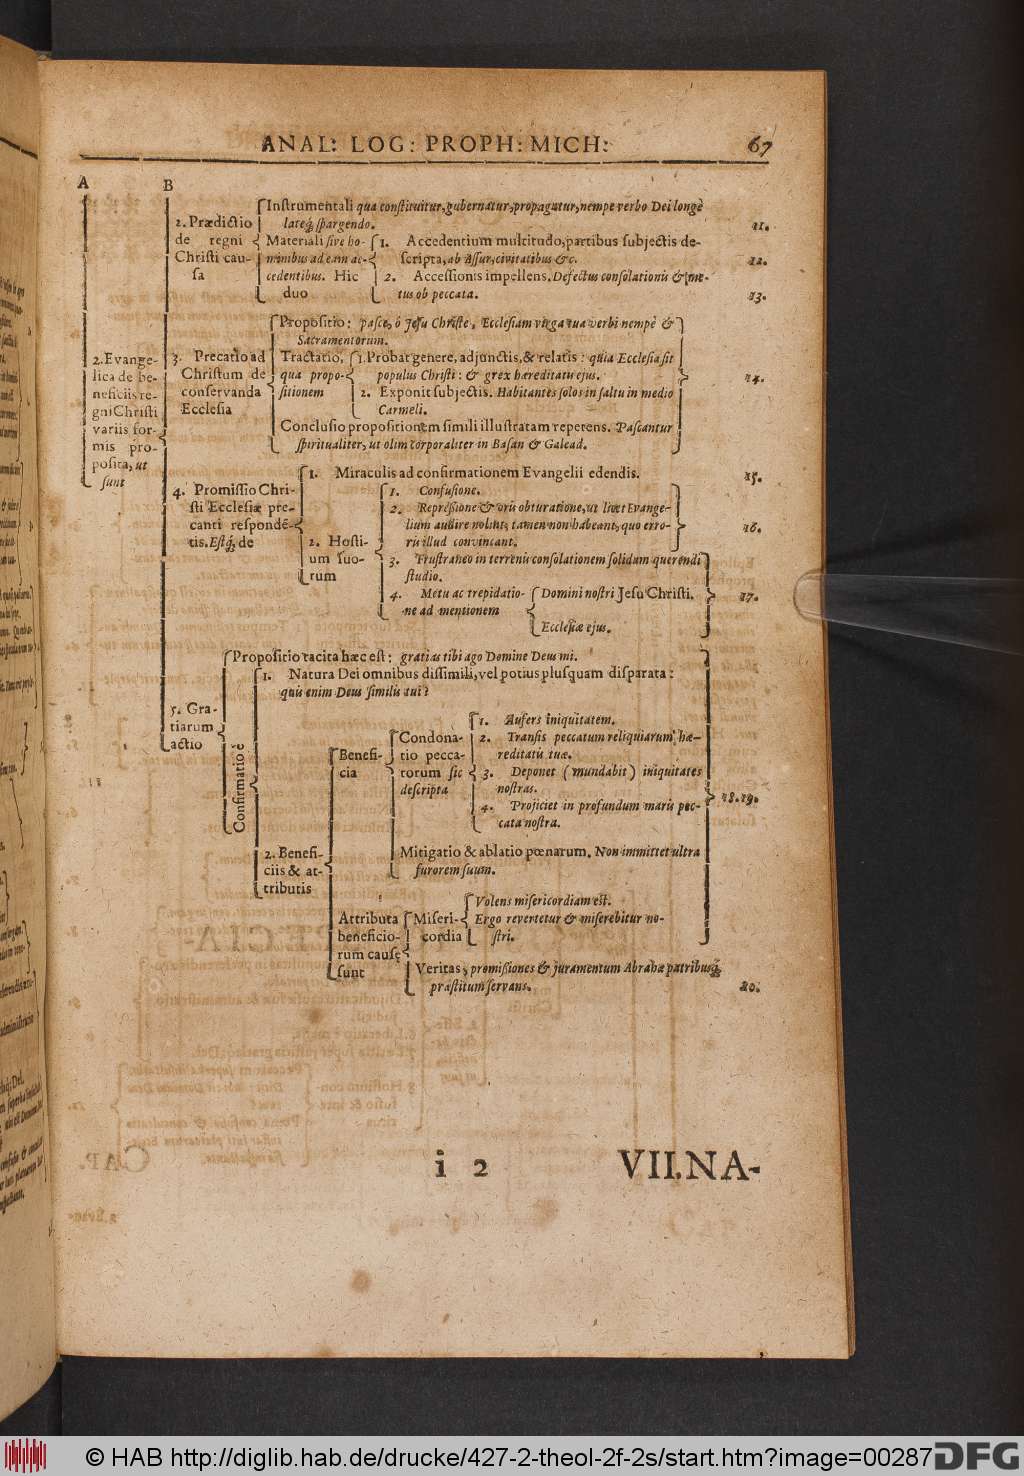 ANAL: LOG: PROPH: MICH: 67
A B
2. Prædictio de regni Christi causa
Instrumentali qua constituitur, gubernatur, propagatur, nempe verbo Dei longè
lateq; spargendo. 11.
Materiali sive hominibus ad eam accedentibus. Hic duo
1. Accedentium multitudo, partibus subjectis de-
scripta, ab Assur, civitatibus &c. 12.
2. Accessionis impellens. Defectus consolationis & me-
tus ob peccata. 13.
2. Evange-
lica de be-
neficiis re-
gni Christi
variis for-
mis pro-
posita, ut
sunt
3. Precatio ad
Christum de
conservanda
Ecclesia
Propositio: pasce, ô Jesu Christe, Ecclesiam virga tua verbi nempè &
Sacramentorum.
Tractatio,
qua propo-
sitionem
1. Probat genere, adjunctis, & relatis: quia Ecclesia sit
populus Christi: & grex hæreditatis ejus. 14.
2. Exponit subjectis. Habitantes solos in saltu in medio
Carmeli.
Conclusio propositionem simili illustratam repetens. Pascantur
spiritualiter, ut olim corporaliter in Basan & Galead.
4. Promissio Chri-
sti Ecclesiæ pre-
canti respondē-
tis. Estq; de
1. Miraculis ad confirmationem Evangelii edendis. 15.
2. Hosti-
um suo-
rum
1. Confusione.
2. Repressione & oris obturatione, ut licet Evange-
lium audire nolint, tamen non habeant, quo erro-
ris illud convincant. 16.
3. Frustraneo in terrenis consolationem solidum querendi
studio.
4. Metu ac trepidatio-
ne ad mentionem
Domini nostri Jesu Christi. 17.
Ecclesiæ ejus.
5. Gra-
tiarum
actio
Propositio tacita hæc est: gratias tibi ago Domine Deus mi.
Confirmatio è
1. Natura Dei omnibus dissimili, vel potius plusquam disparata:
quis enim Deus similis tui?
2. Benefi-
ciis & at-
tributis
Benefi-
cia
Condona-
tio pecca-
torum sic
descripta
1. Aufers iniquitatem.
2. Transis peccatum reliquiarum hæ-
reditatis tuæ.
3. Deponet (mundabit) iniquitates
nostras.
4. Projiciet in profundum maris pec-
cata nostra.
18.19.
Mitigatio & ablatio pœnarum. Non immittet ultra
furorem suum.
Attributa
beneficio-
rum causę
sunt
Miseri-
cordia
Volens misericordiam est.
Ergo revertetur & miserebitur no-
stri.
Veritas, promissiones & juramentum Abrahæ patribusq;
præstitum servans. 20.
i 2 VII. NA-
© HAB http://diglib.hab.de/drucke/427-2-theol-2f-2s/start.htm?image=00287
DFG